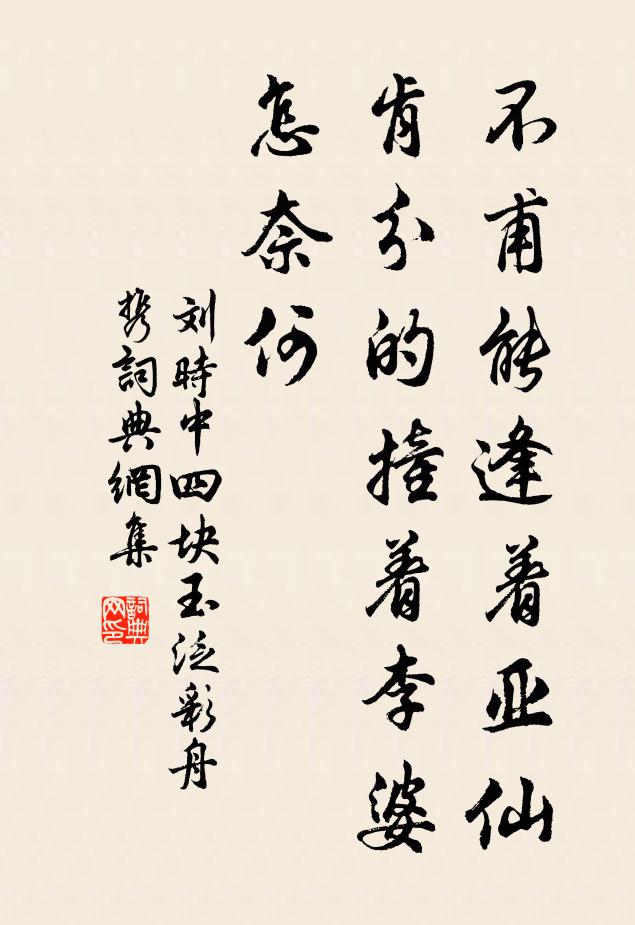 不甫能逢着亚仙
肯分的撞着李婆
怎奈何
刘時中四块玉泛彩舟
携詞典網集
詞典网印